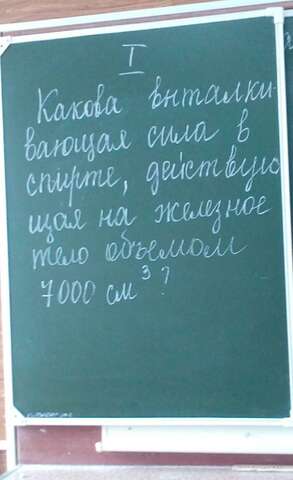 I
Какова выталки-
вающая сила в
спирте, действую
щая на железное
тело объемом
7000 см³?